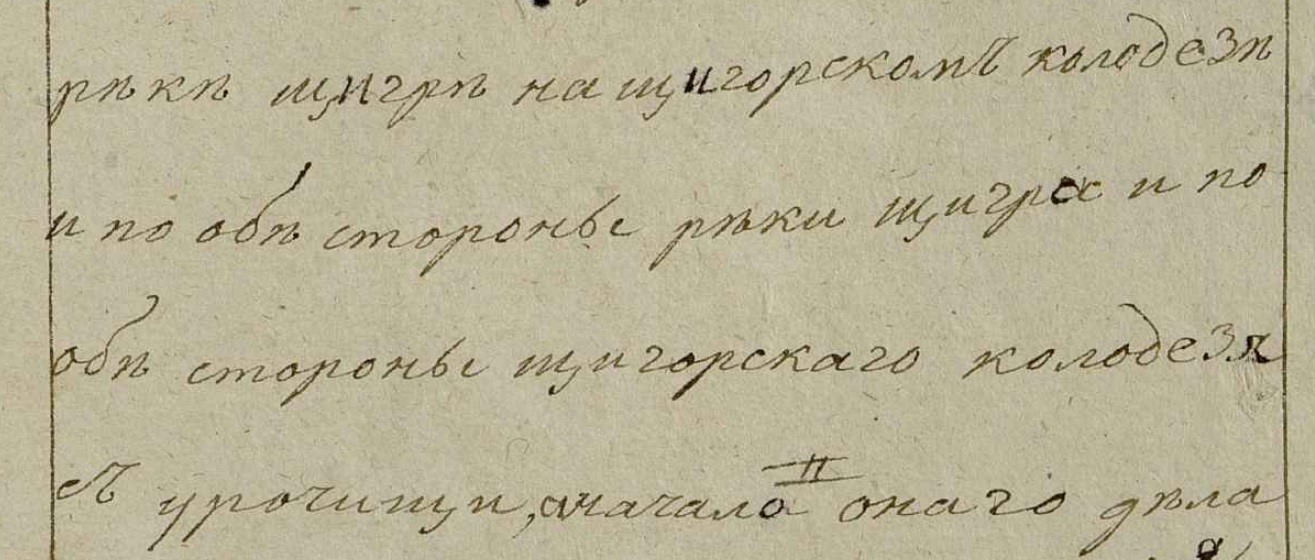 рѣкѣ щигрѣ на щигорскомъ колодезѣ
и по обѣ стороны рѣки щигра и по
обѣ стороны щигорскаго колодезя
съ урочищи, а начало онаго дѣла